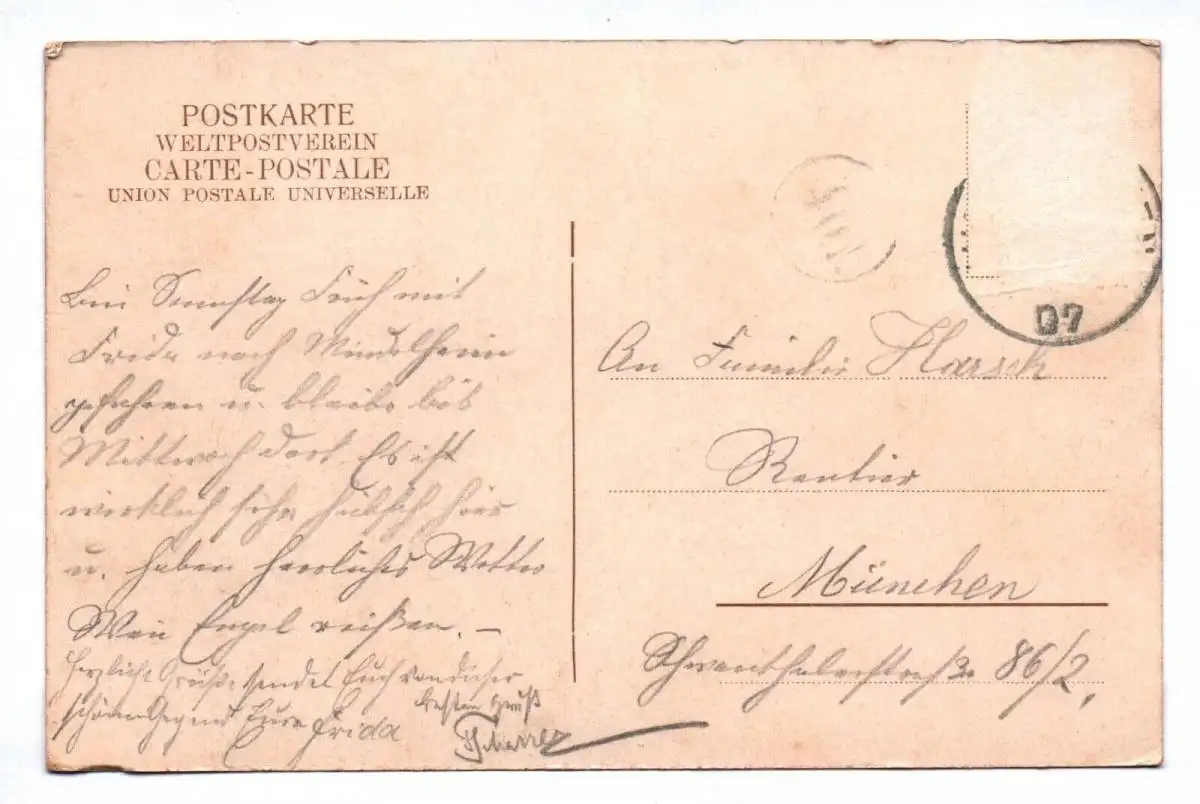 POSTKARTE
WELTPOSTVEREIN
CARTE-POSTALE
UNION POSTALE UNIVERSELLE
Bin Samstag Früh mit
Frida nach Mindelheim
gefahren u. bleibe bis
Mittwoch dort. Es ist
wirklich sehr hübsch hier
u. haben herrliches Wetter
Wen Engel reißen. —
Herzliche Grüße sendet Euch von dieser
schönen Gegend Eure Frida
besten Gruß
07
An Familie Harsch
Rentier
München
Schwanthalerstraße 86/2.